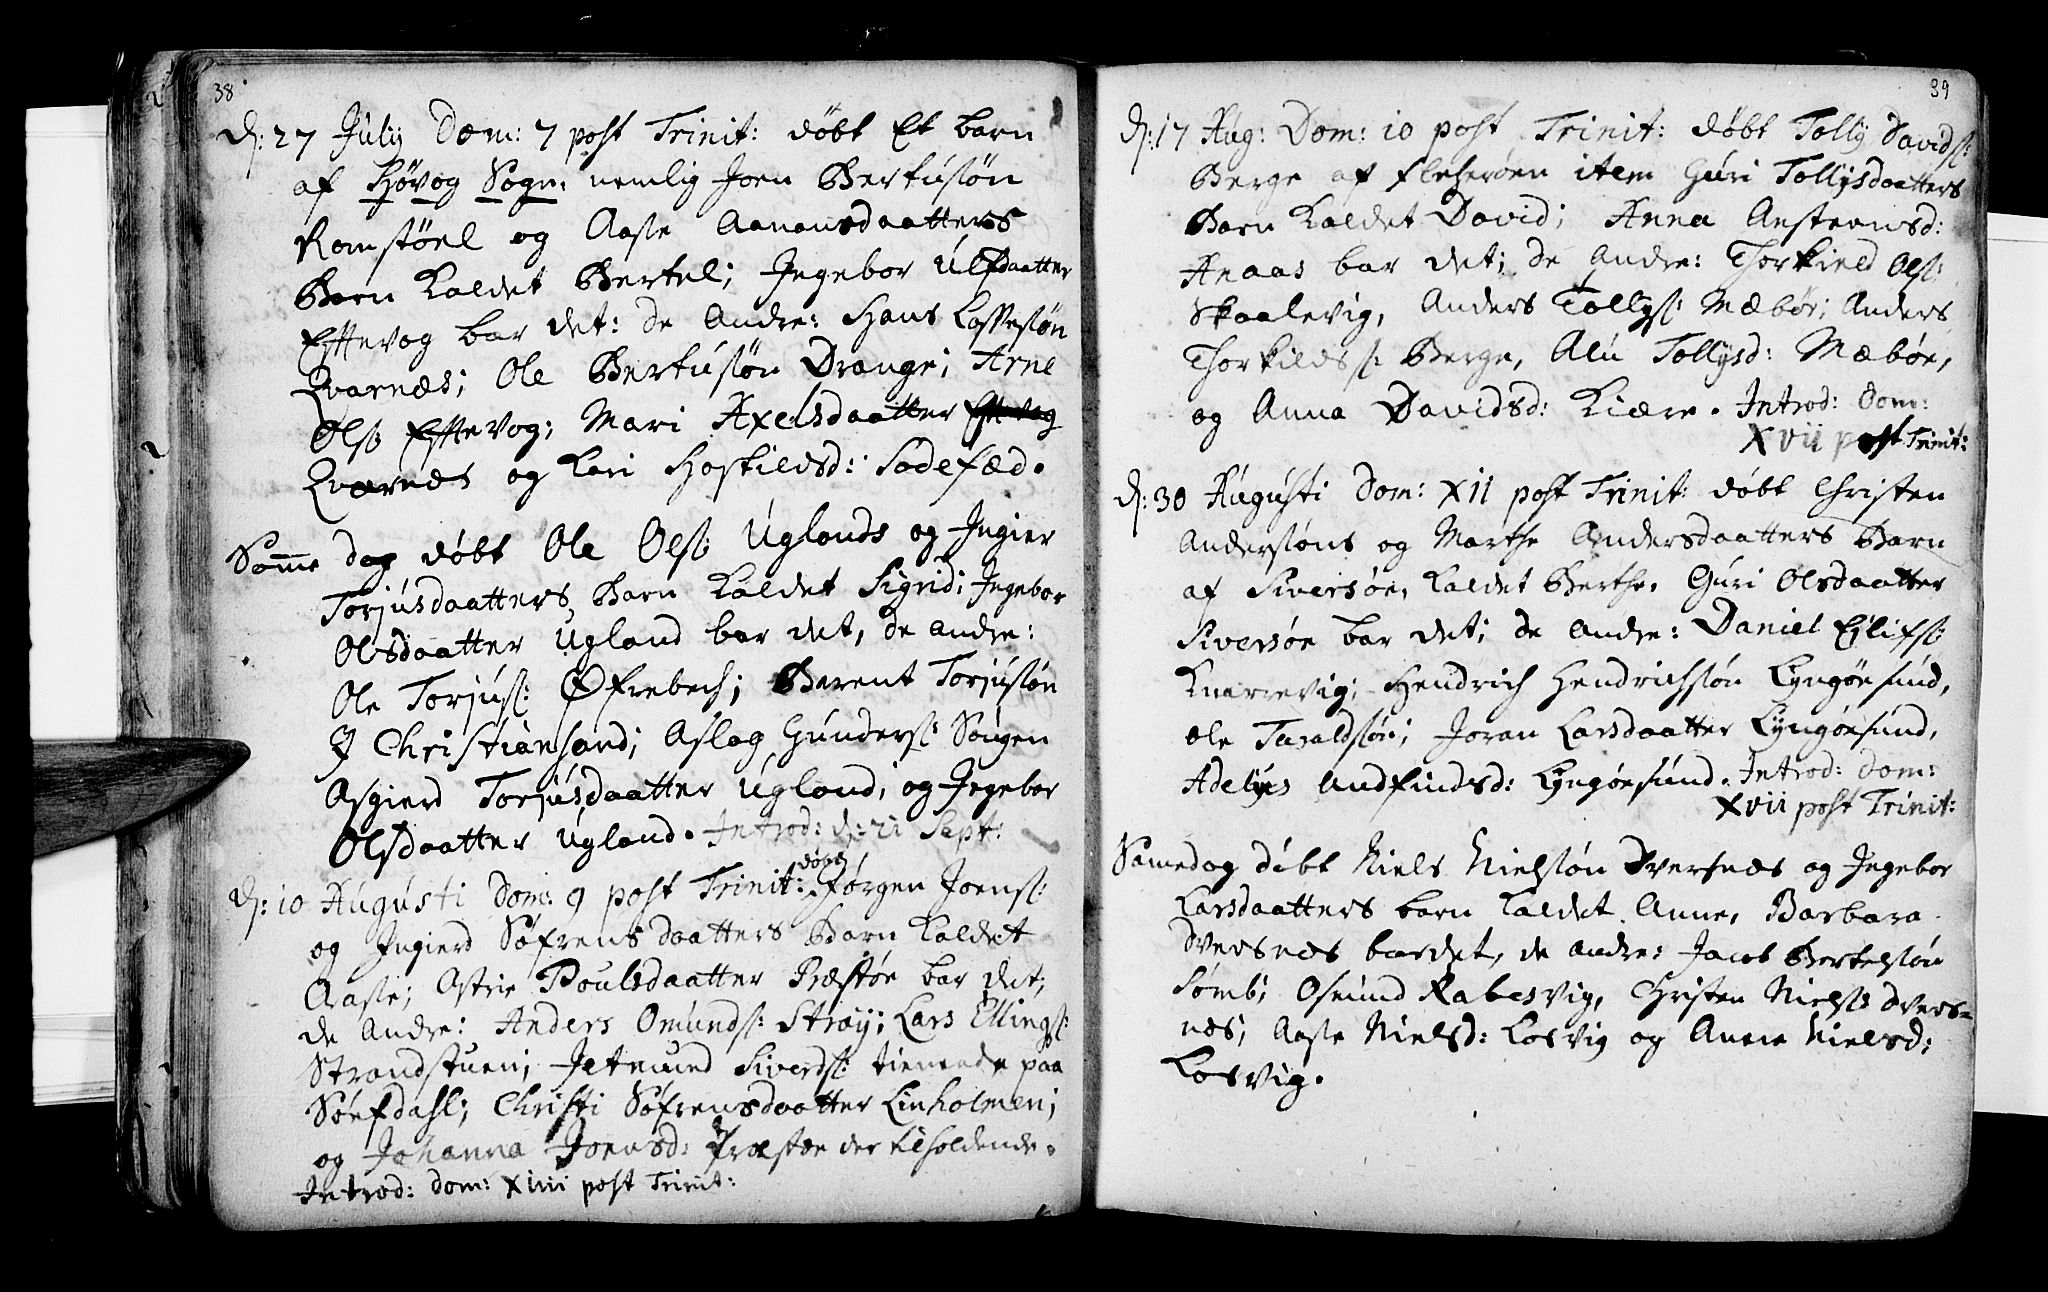 38
d: 27 Julij Dom: 7 post Trinit: døbt Et barn
af Høvog Sogn: nemlig Joen Bertusøn
Romstøel og Aase Aanonsdaatters
Barn Kaldet Bertel; Ingebor Ulfdaatter
Eftevog bar det: de Andre: Hans Lassesøn
Qvarnæs; Ole Bertusøn Drange; Arne
Ols: Eftevog; Mari Axelsdaatter Eftevog
Qvarnæs og Kari Hoskildsd: Sødefæd.
Samme dag døbt Ole Ols: Uglands og Ingier
Torjusdaatters Barn Kaldet Sigrid; Ingebor
Olsdaatter Ugland bar det, de andre:
Ole Torjus: Øfrebech; Berent Torjusøn
J Christiansand; Aslag Gunders: Søngen
Asgierd Torjusdaatter Ugland; og Ingebor
Olsdaatter Ugland. Introd: d: 21 Sept:
d: 10 Augusti Dom: 9 post Trinit: døbt Jørgen Joens:
og Ingierd Søfrensdaatters Barn Kaldet
Aase; Astrie Poulsdaatter Præstøe bar det;
de Andre: Anders Omunds: Strøy; Lars Ellings:
Strandstuen; Jetmund Siverds: tienende paa
Søefdahl; Christi Søfrensdaatter Linholmen;
og Johanna Joensd: Præstøe der tilholdende.
Introd: dom: XIIII post Trinit:
39
d: 17 Aug: Dom: 10 post Trinit: døbt Tolly Davids:
Berge af Flekerøen item Guri Tollysdaatters
Barn Kaldet David; Anna Anstensd:
Aaaas bar det; de Andre: Thorkield Ols:
Skaalevig, Anders Tollys: Mæbøe; Anders
Thorkilds: Berge, Alu Tollysd: Mæbøe,
og Anna Davidsd: Kiære. Introd: Dom:
XVII post Trinit:
d: 30 Augusti Dom: XII post Trinit: døbt Christen
Andersøns og Marthe Andersdaatters Barn
af Siversøe, Kaldet Berthe. Guri Olsdaatter
Siversøe bar det; de Andre: Daniel Ejlifs:
Knarrevig; Hendrich Hendrichsøn Lyngøesund,
Ole Taraldsøn; Joran Larsdaatter Lyngøesund,
Adelyes Andfindsd: Lyngøesund. Introd: Dom:
XVII post Trinit:
Samedag døbt Niels Nielsøn Dversnæs og Ingebor
Larsdaatters barn Kaldet Anne, Barbara
Dversnæs bardet, de andre: Jacob Bertelsøn
Sømb; Osmund Rabesvig, Christen Niels: Dvers=
næs; Aase Nielsd: Kosvig og Anne Nielsd:
Kosvig.